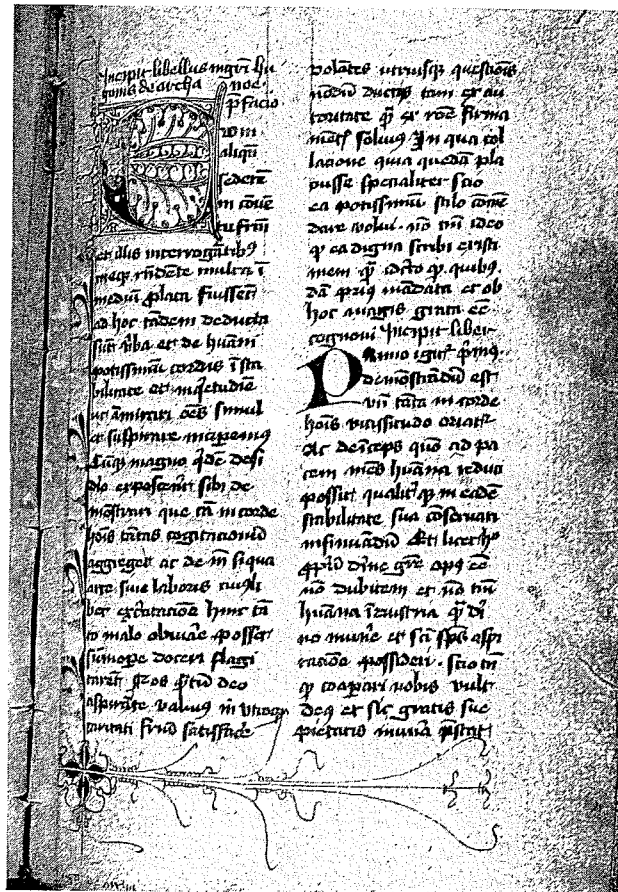 Incipit libellus mgri hu
gonis de archa noe .
p̄facio
Cum
aliqn̄
sederē
in cōue
tu frm̄
et illis interrogātib9
meqȝ rn̄dente multa ī
mediū ꝓlata fuissēt
ad hoc tādem deducta
sūt v̄ba et de huāni
potissimū cordis īsta
bilitate et inqetudīe
ac āmirari oēs simul
et suspirare inciꝑem9
Cūqȝ magno qdē desi
dio exposcerēt sibi de
mōstrari que cā in corde
hōis tātas cogitacionū
aggreges ac de in si qua
arte siue laboris cuiꝰli
bet ex̄citacōe huic tā
to malo obuiāe posset
sūmoꝑe doceri flagi
tarēt Nos q̄tū deo
aspirāte valuiꝰ in vtroqȝ
caritati frūm satisface
volētes vtriusqȝ questiōis
nodū
toritate q̄ et rōe firma
mētis soluiꝰ In qua col
lacione quia quedā pla
cuisse spēcialiter scio
ea potissimū stilo cōmē
dare volui . nō tm̄ ideo
qȝ ea digna scribi existi
mem q̄ idcīo qȝ quibꝰ
dā priꝰ inaudita et ob
hoc magis grata eē
cognoui Incipit liber
Primo igit̄ p̄miꝰ
demōstrādū est
vn̄ tāta in corde
hōis vicissitudo oriat̄
Ac deīceps quō ad pa
cem mēs huāna reduci
possit qualit̄ qȝ in eadē
stabilitate sua cōseruari
insinuādū Et licet ho
ꝓpriū dīne grē opꝰ eē
nō dubitem et nō tm̄
huāna īdustria q̄ di
no mune et sci spūs aspi
racōe possideri . scio tn̄
qȝ coaꝑari nobis vult
deꝰ et sic gratis sue
pietatis munia p̄stat